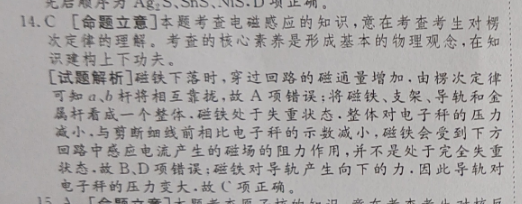 先后顺序为 Ag₂S、SnS、NiS,D 项正确。
14.C [命题立意]本题考查电磁感应的知识,意在考查考生对楞
次定律的理解。考查的核心素养是形成基本的物理观念,在知
识建构上下功夫。
[试题解析]磁铁下落时,穿过回路的磁通量增加,由楞次定律
可知 a、b 杆将相互靠拢,故 A 项错误;将磁铁、支架、导轨和金
属杆看成一个整体,磁铁处于失重状态,整体对电子秤的压力
减小,与剪断细线前相比电子秤的示数减小,磁铁会受到下方
回路中感应电流产生的磁场的阻力作用,并不是处于完全失重
状态,故 B、D 项错误;磁铁对导轨产生向下的力,因此导轨对
电子秤的压力变大,故 C 项正确。
15.A [命题立意]本题考查原子核的知识,意在考查考生对核反